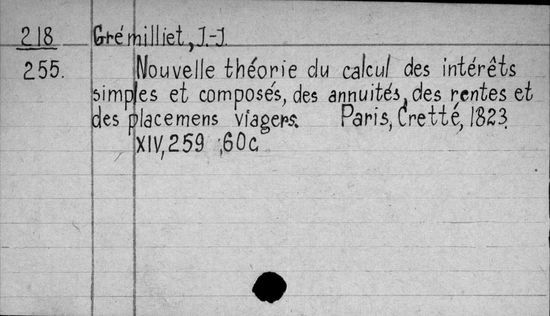 218 Grémilliet, J.-J.
255. Nouvelle théorie du calcul des intérêts
simples et composés, des annuités, des rentes et
des placemens viagers. Paris, Cretté, 1823.
XIV, 259 ; 60c.